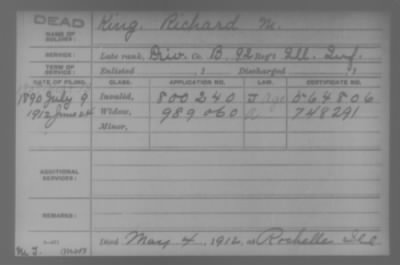 DEAD King, Richard M.
NAME OF SOLDIER:
SERVICE: Late rank, Priv. Co. B, 92 Reg't Ill. Inf.
TERM OF SERVICE: Enlisted , 1 Discharged , 1
DATE OF FILING. CLASS. APPLICATION NO. LAW. CERTIFICATE NO.
1890 July 9 Invalid, 800240 564806
1912 June 24 Widow, 989060 748291
Minor,
ADDITIONAL SERVICES:
REMARKS:
Died May 4, 1912, at Rochelle Ill